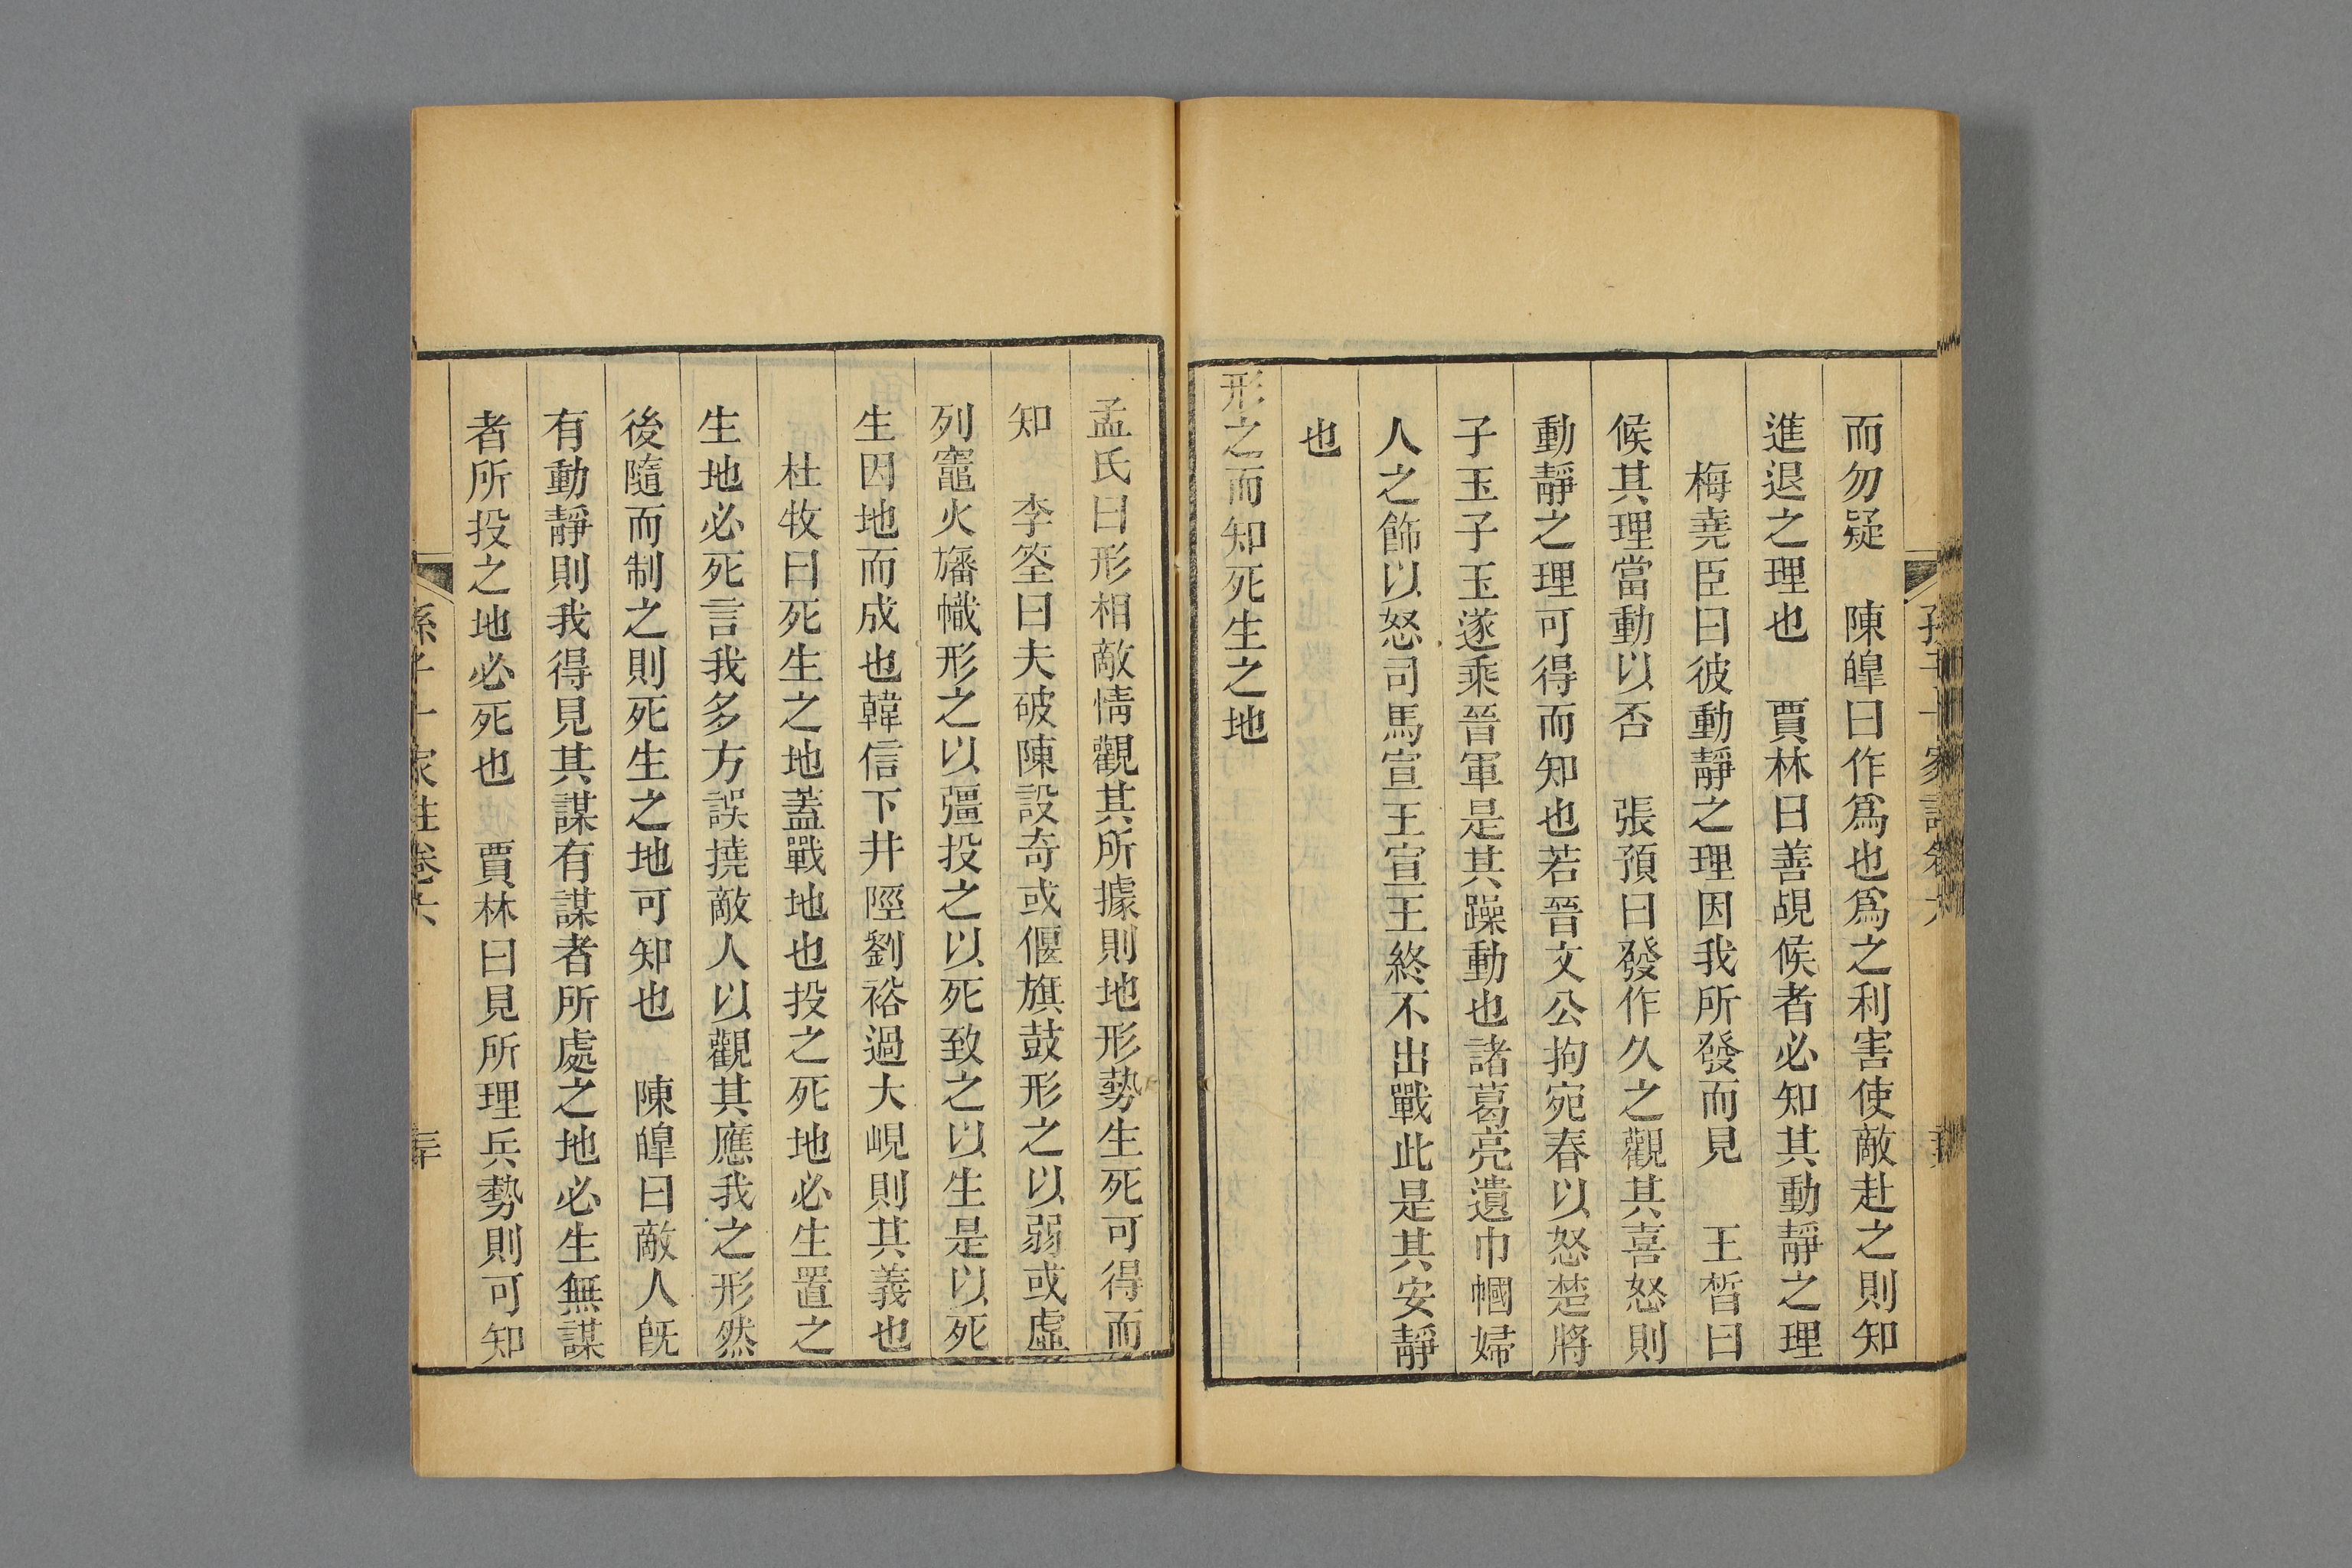 而勿疑　陳皥曰作爲也爲之利害使敵赴之則知
進退之理也　賈林曰善覘候者必知其動靜之理
梅堯臣曰彼動靜之理因我所發而見　王晳曰
候其理當動以否　張預曰發作久之觀其喜怒則
動靜之理可得而知也若晉文公拘宛春以怒楚將
子玉子玉遂乘晉軍是其躁動也諸葛亮遺巾幗婦
人之飾以怒司馬宣王宣王終不出戰此是其安靜
也
形之而知死生之地
孟氏曰形相敵情觀其所據則地形勢生死可得而
知　李筌曰夫破陳設奇或偃旗鼓形之以弱或虛
列竈火旛幟形之以彊投之以死致之以生是以死
生因地而成也韓信下井陘劉裕過大峴則其義也
杜牧曰死生之地蓋戰地也投之死地必生置之
生地必死言我多方誤撓敵人以觀其應我之形然
後隨而制之則死生之地可知也　陳皥曰敵人旣
有動靜則我得見其謀有謀者所處之地必生無謀
者所投之地必死也　賈林曰見所理兵勢則可知
孫子十家註卷六